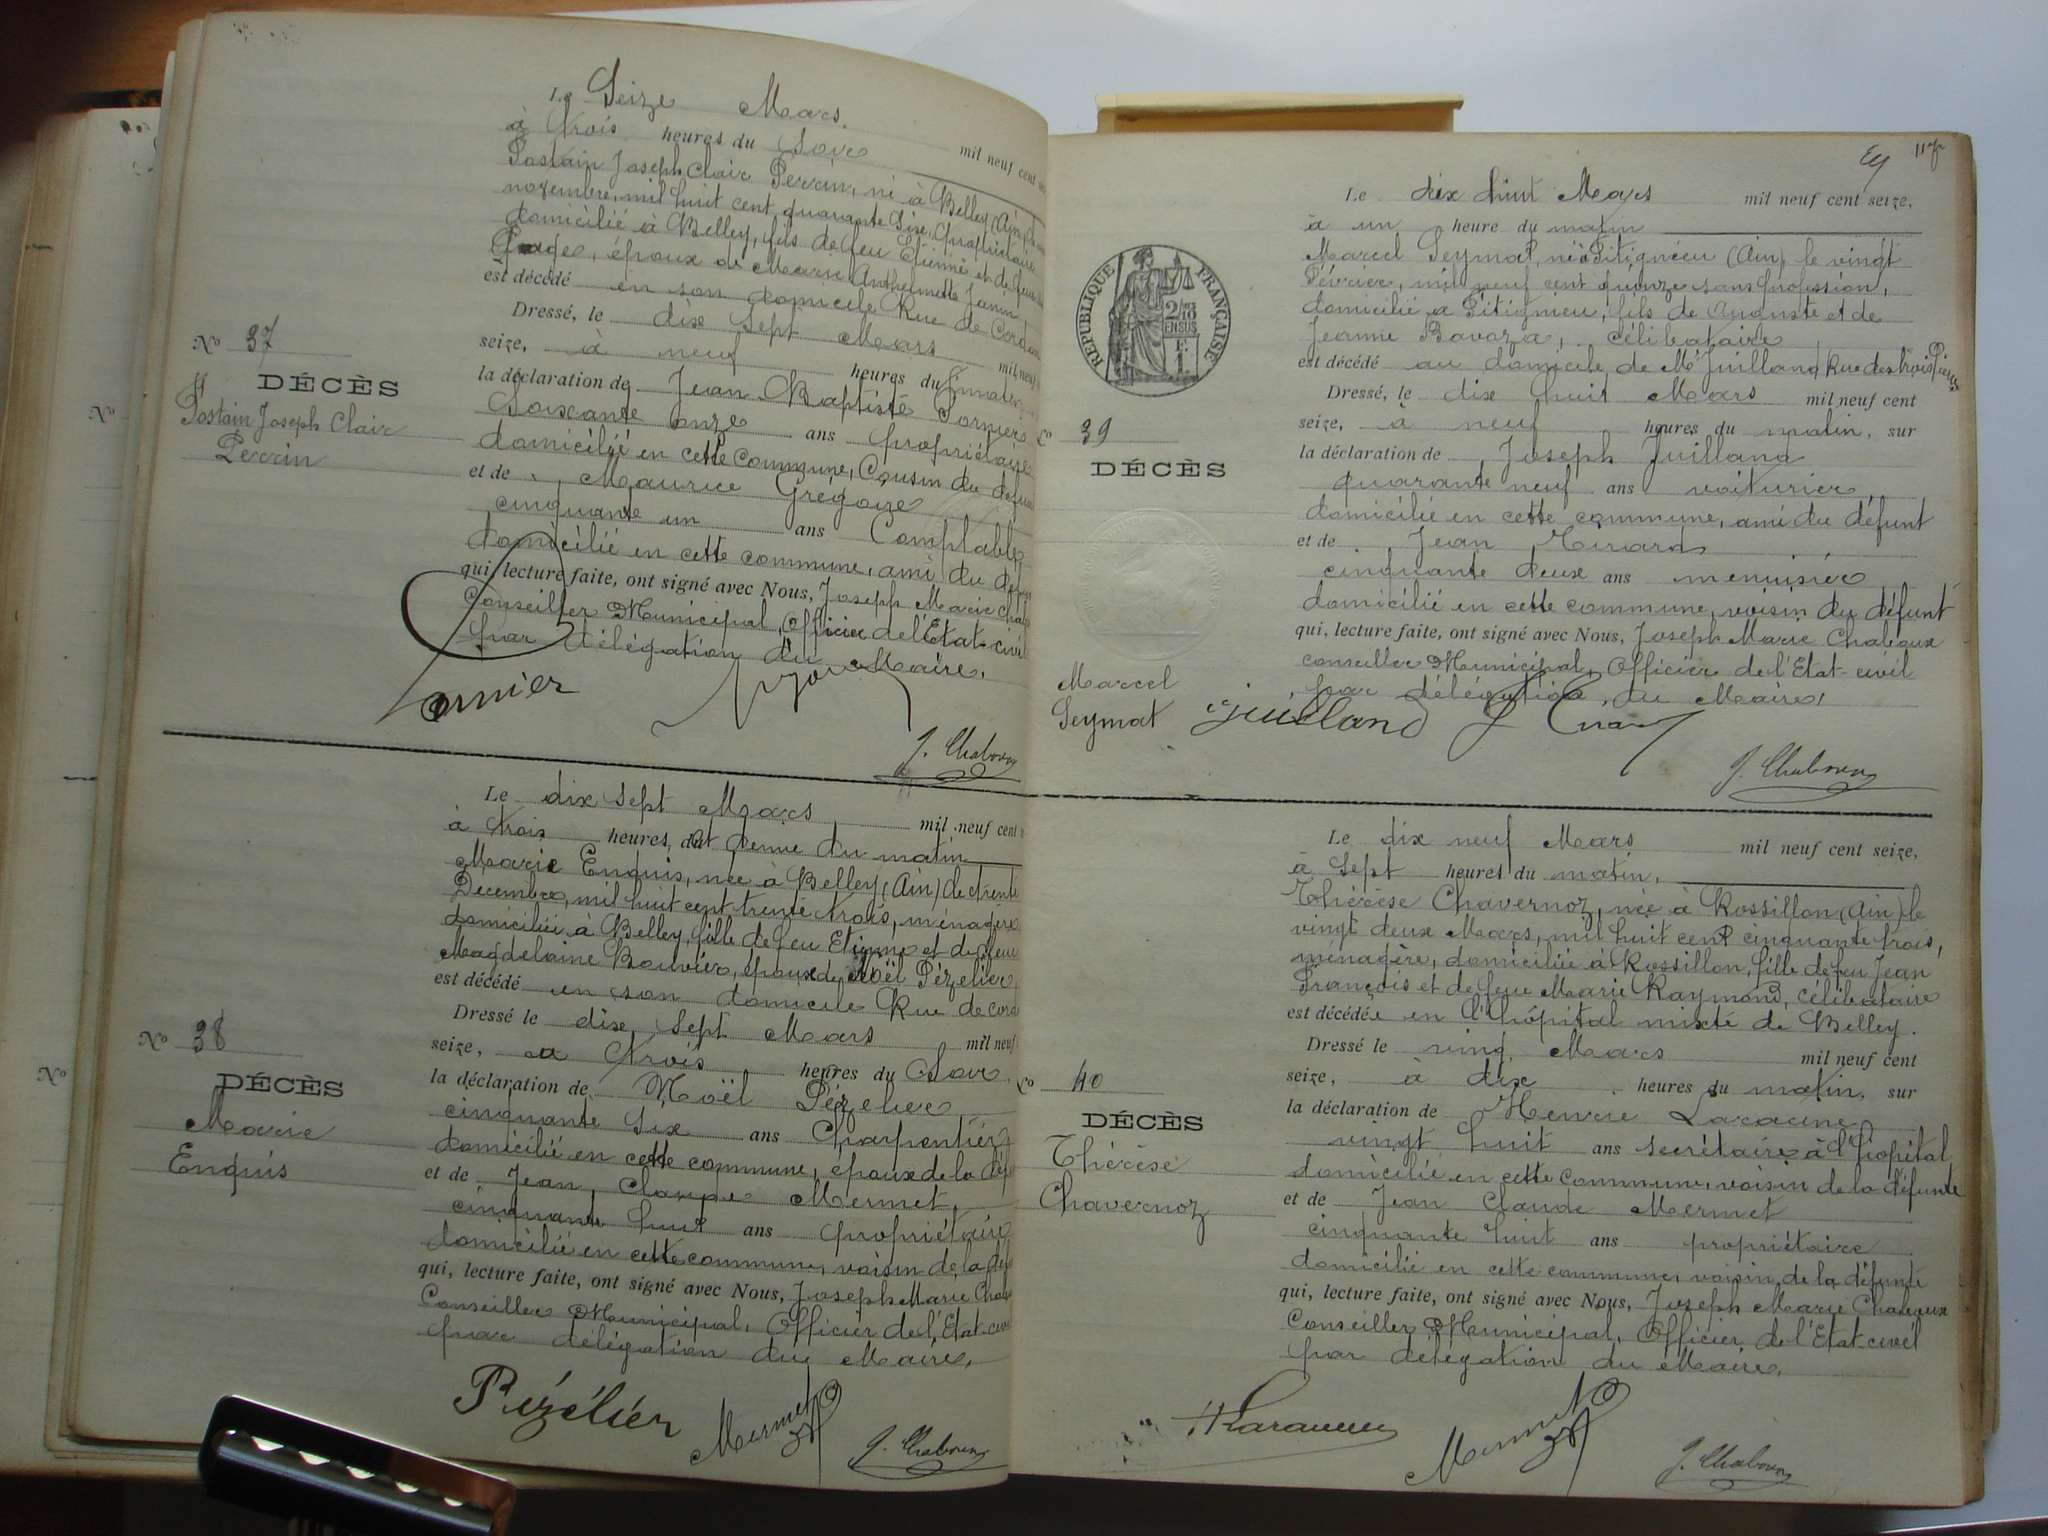 Le Seize Mars mil neuf cent
à trois heures du Soir
Joseph Clair Perrin, né à Belley (Ain)
novembre, mil huit cent quarante Six, propriétaire
domicilié à Belley, fils de feu Etienne et de feue
époux de Marie Anthelmette Janin
est décédé en son domicile Rue de Cordon
Dressé, le dix Sept Mars mil neuf
seize, à neuf heures du matin
la déclaration de Jean Baptiste Cornier
Soixante onze ans propriétaire
domicilié en cette commune, Cousin du défunt
et de Maurice Grégoire
cinquante un ans Comptable
domicilié en cette commune, ami du
qui, lecture faite, ont signé avec Nous, Joseph Marie
Conseiller Municipal, Officier de l'Etat-civil
par délégation du Maire.
Cornier
J. Chaboux
No 37
DÉCÈS
Joseph Clair
Perrin
Le dix Sept Mars mil neuf cent
à trois heures et demie du matin
Marie Enquis, née à Belley (Ain) le trente
Décembre, mil huit cent trente trois, ménagère
domiciliée à Belley, fille de feu Etienne et de feue
Magdelaine Bouvier, épouse de Noël Pézelier
est décédé en son domicile Rue de
Dressé le dix Sept Mars mil neuf
seize, à trois heures du Soir
la déclaration de Noël Pézelier
cinquante Six ans Charpentier
domicilié en cette commune, époux de la
et de Jean Claude Mermet
cinquante huit ans propriétaire
domicilié en cette commune, voisin de la
qui, lecture faite, ont signé avec Nous, Joseph Marie
Conseiller Municipal, Officier de l'Etat-civil
par délégation du Maire.
Pézélier Mermet J. Chaboux
No 38
DÉCÈS
Marie
Enquis
No
No
117
Le dix huit Mars mil neuf cent seize,
à un heure du matin
Marcel Seymat, né à Pitignieu (Ain) le vingt
Février, mil neuf cent quinze sans profession,
domicilié à Pitignieu, fils de Auguste et de
Jeanne Bavoza, célibataire
est décédé au domicile de Mr Juilland Rue des trois
Dressé, le dix huit Mars mil neuf cent
seize, à neuf heures du matin, sur
la déclaration de Joseph Juilland
quarante neuf ans voiturier,
domicilié en cette commune, ami du défunt
et de Jean
cinquante deux ans menuisier
domicilié en cette commune, voisin du défunt
qui, lecture faite, ont signé avec Nous, Joseph Marie Chaboux
conseiller Municipal, Officier de l'Etat-civil
par délégation, du Maire,
Juilland J. Chaboux
RÉPUBLIQUE FRANÇAISE
2/10
EN SUS
39
DÉCÈS
Marcel
Seymat
Le dix neuf Mars mil neuf cent seize,
à Sept heures du matin,
Thérèse Chavernoz, née à Rossillon (Ain) le
vingt deux Mars, mil huit cent cinquante trois,
ménagère, domiciliée à Rossillon, fille de feu Jean
François et de feue Marie Raymond, célibataire
est décédée en l'hôpital mixte de Belley.
Dressé le vingt Mars mil neuf cent
seize, à dix heures du matin, sur
la déclaration de Henrie Laracine
vingt huit ans secrétaire à l'hôpital
domicilié en cette commune, voisin de la défunte
et de Jean Claude Mermet
cinquante huit ans propriétaire
domicilié en cette commune, voisin de la défunte
qui, lecture faite, ont signé avec Nous, Joseph Marie Chaboux
Conseiller Municipal, Officier de l'Etat-civil
par délégation du Maire.
H Laracine Mermet J. Chaboux
40
DÉCÈS
Thérèse
Chavernoz